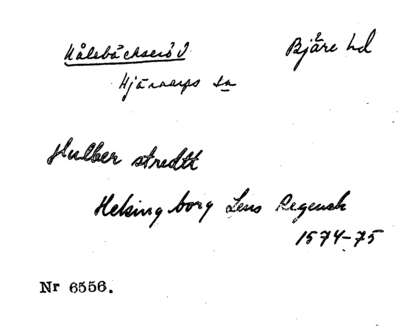 Kålebäcksröd Bjäre hd
Hjärnarps sn
Hulber stredtt
Helsingborg Lens Regensk
1574-75
Nr 6556.